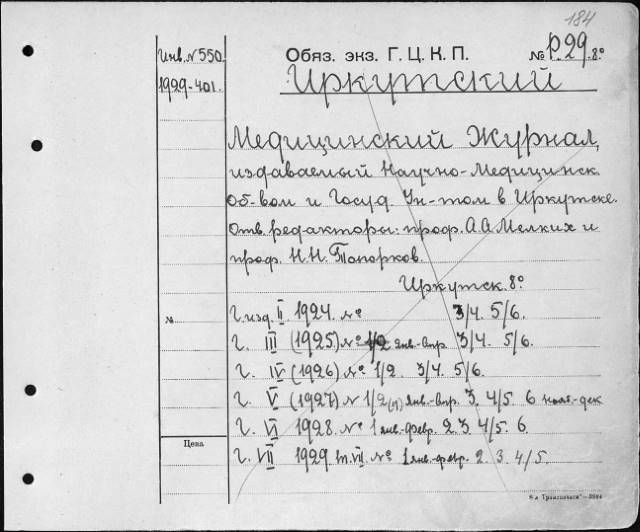 184
Инв. № 550. Обяз. экз. Г. Ц. К. П. № Р.29. 8°
1929-401. Иркутский
Медицинский Журнал,
издаваемый Научно-Медицинск.
Об-вом и Госуд. Ун-том в Иркутске.
Отв. редакторы: проф. А.А. Мелких и
проф. Н.Н. Топорков.
Иркутск. 8°
№ Г. изд. II. 1924. № 3/4. 5/6.
Г. III (1925) № 1/2 янв.-апр. 3/4. 5/6.
Г. IV (1926) № 1/2. 3/4. 5/6.
Г. V (1927) № 1/2 янв.-апр. 3. 4/5. 6 нояб.-дек
Г. VI 1928. № 1 янв.-февр. 2. 3. 4/5. 6.
Цена
Г. VII 1929 т. VII. № 1 янв.-февр. 2. 3. 4/5.